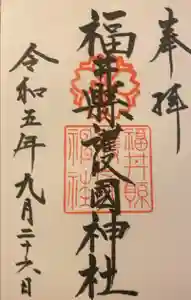 奉拝
福井縣護國神社
福井縣
護國
神社
令和五年九月二十六日